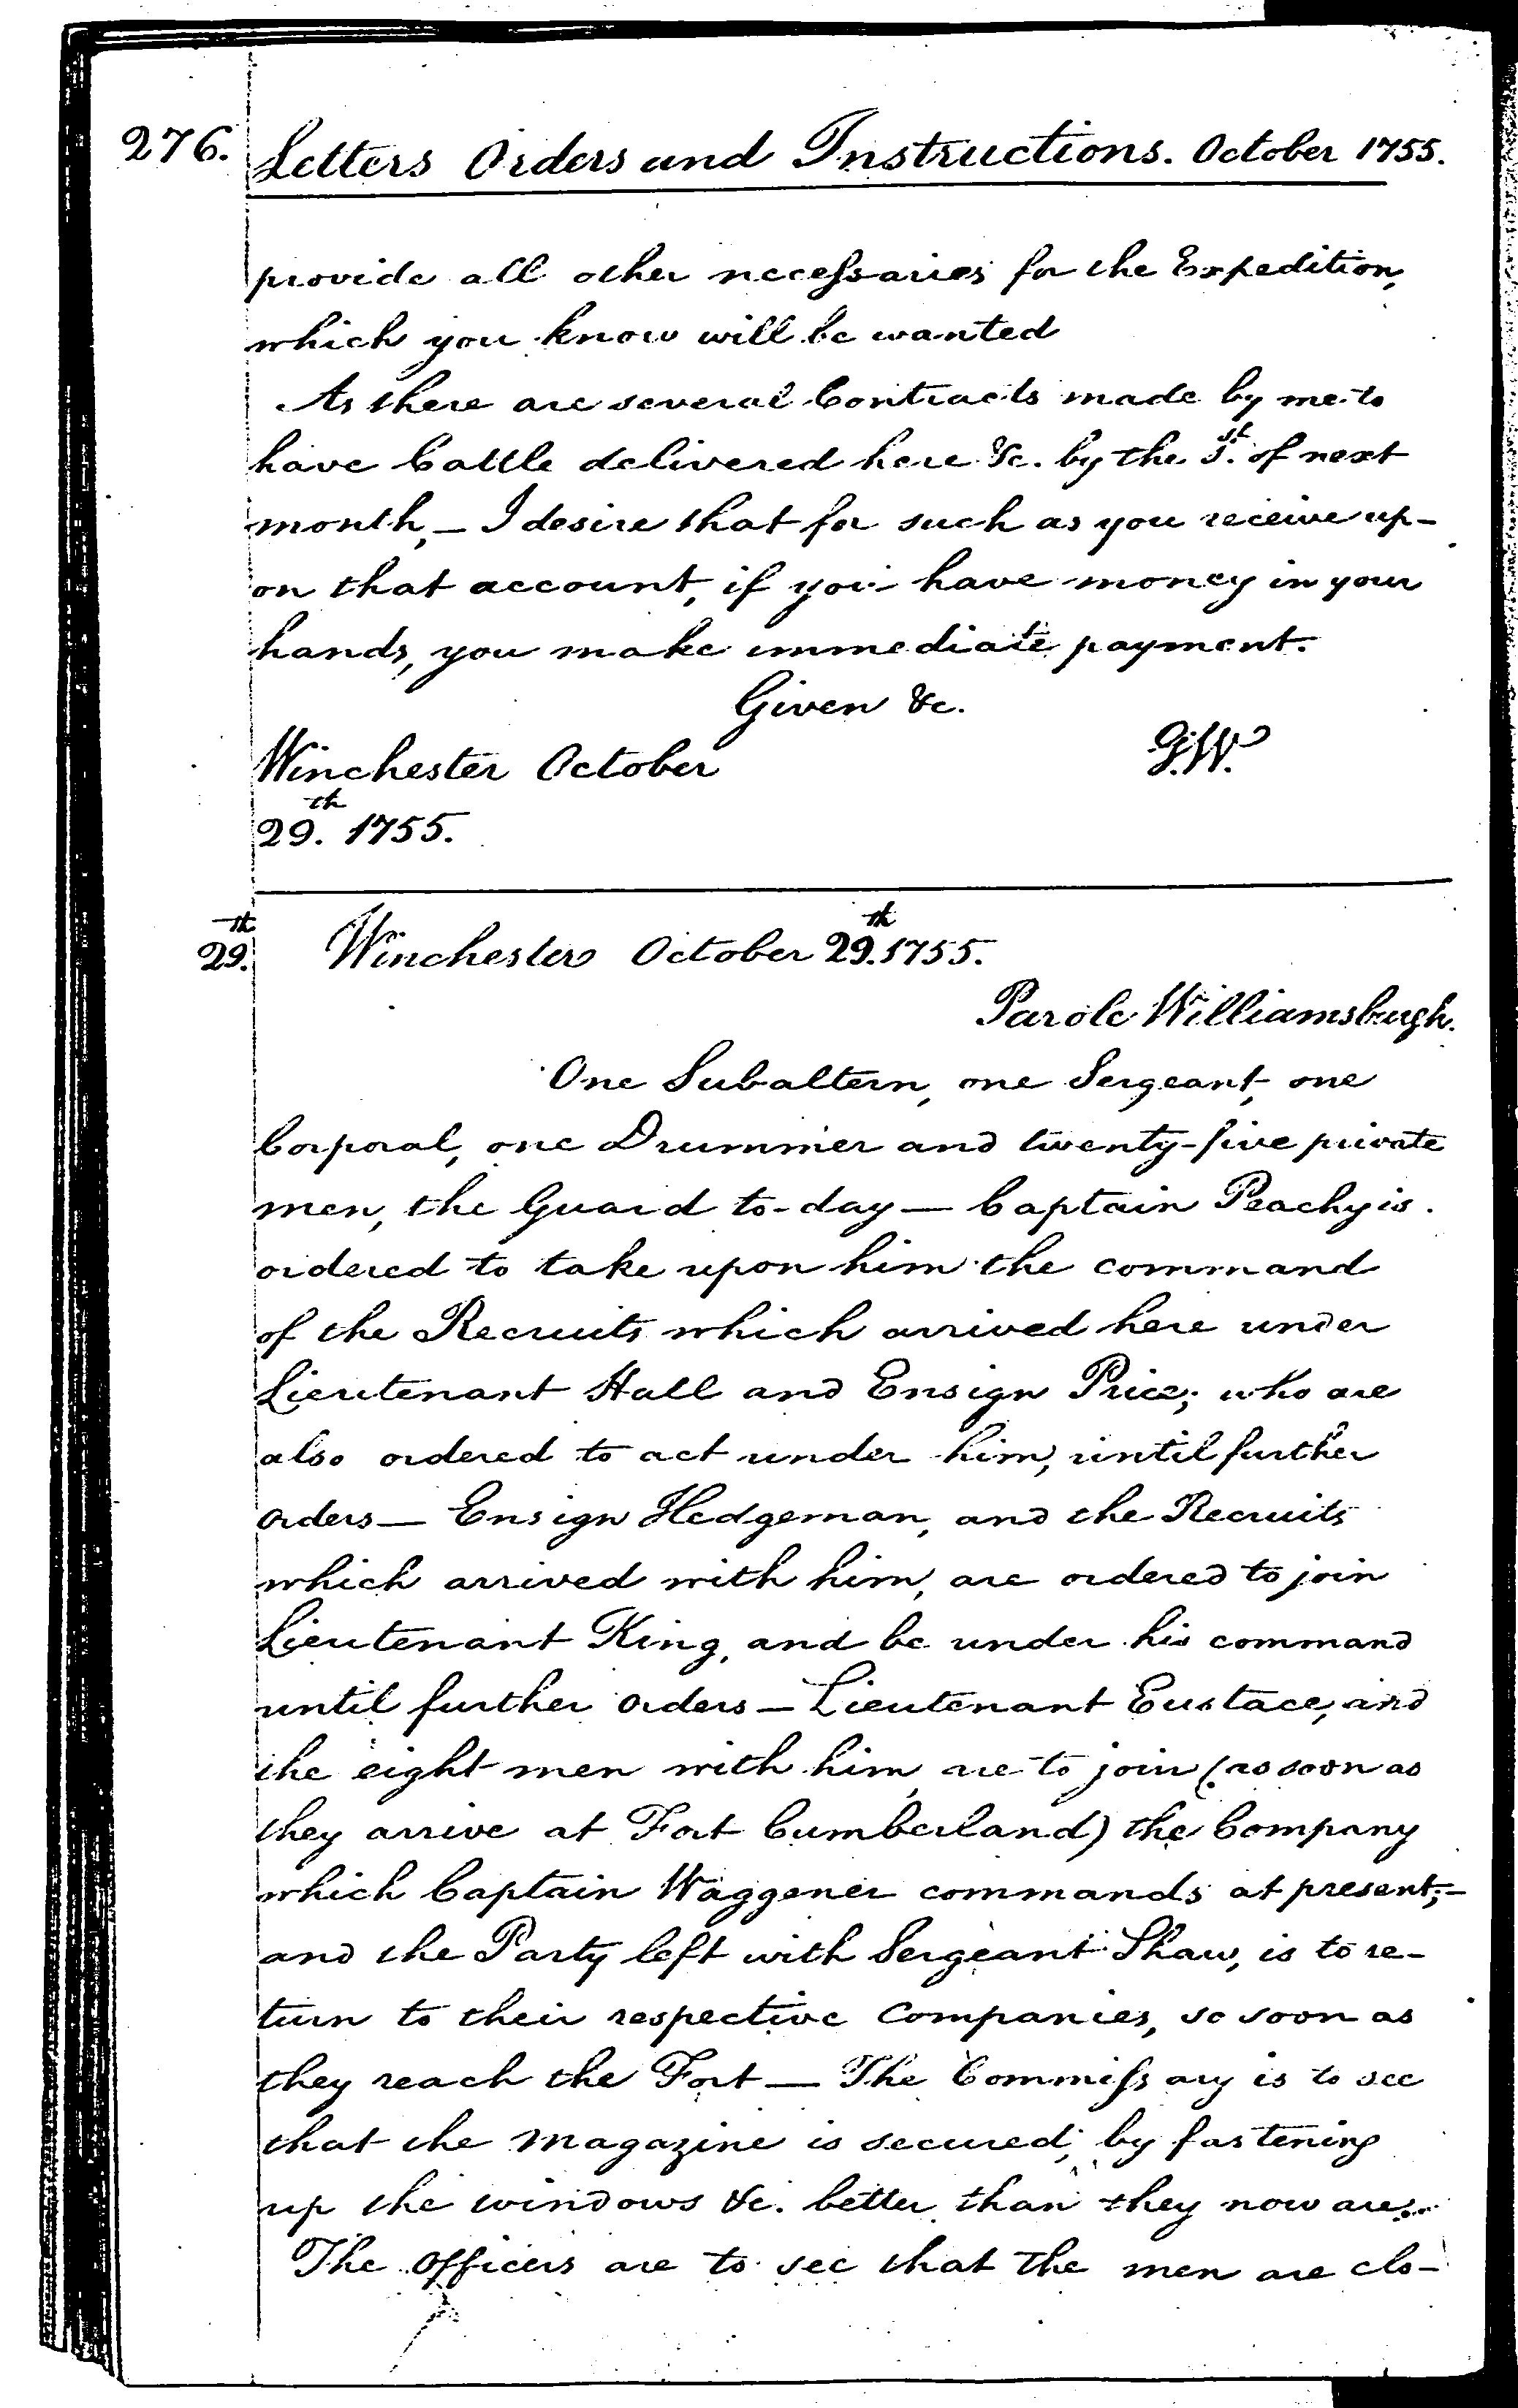 276. Letters Orders and Instructions. October 1755.
provide all other necessaries for the Expedition,
which you know will be wanted
As there are several Contracts made by me to
have Cattle delivered here &c. by the 1st. of next
month,— I desire that for such as you receive up-
on that account, if you have money in your
hands, you make immediate payment.
Given &c.
Winchester October G.W.
29th. 1755.
29th. Winchester October 29th. 1755.
Parole Williamsburgh.
One Subaltern, one Sergeant, one
Corporal, one Drummer and twenty-five private
men, the Guard to-day — Captain Peachy is
ordered to take upon him the command
of the Recruits which arrived here under
Lieutenant Hall and Ensign Price; who are
also ordered to act under him, until further
orders — Ensign Hedgeman, and the Recruits
which arrived with him, are ordered to join
Lieutenant King, and be under his command
until further orders — Lieutenant Eustace, and
the eight men with him, are to join (as soon as
they arrive at Fort Cumberland) the Company
which Captain Waggener commands at present;—
and the Party left with Sergeant Shaw, is to re-
turn to their respective Companies, so soon as
they reach the Fort — The Commissary is to see
that the magazine is secured, by fastening
up the windows &c. better than they now are.
The Officers are to see that the men are clo-